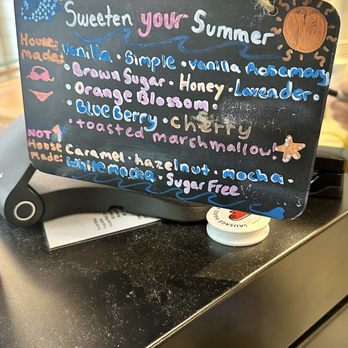 Sweeten your Summer
House made:
Vanilla • Simple • Vanilla Rosemary
• Brown Sugar • Honey • Lavender •
• Orange Blossom •
• BlueBerry • Cherry
• toasted marshmallow!
NOT House Made:
Caramel • hazelnut • mocha •
White mocha • Sugar Free
SAUSAGE